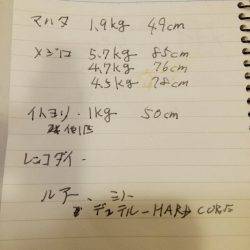 マハタ 1.9kg 49cm
メジロ 5.7kg 85cm
4.7kg 76cm
4.5kg 78cm
イトヨリ. 1kg 50cm
他1匹
レンコダイ.
ルアー.
デュエル-HARD CORE